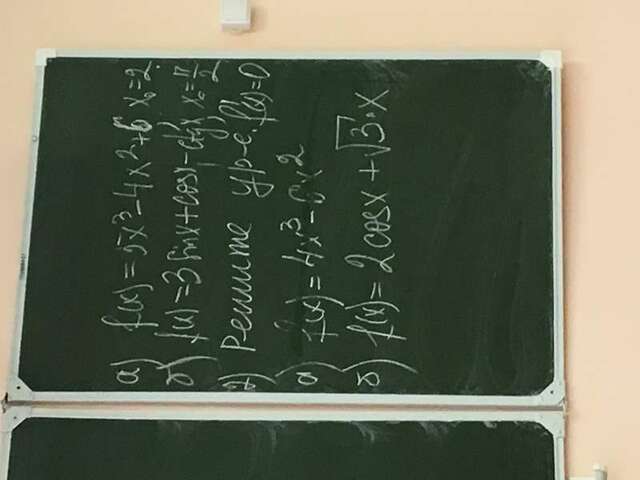 а) f(x) = 5x³ - 4x² + 6 x₀ = 2.
б) f(x) = 3 sin x + cos x - ctg x, x₀ = π/2
2) Решите ур-е. f'(x) = 0
а) f(x) = 4x³ - 6x²
б) f(x) = 2 cos x + √3·x